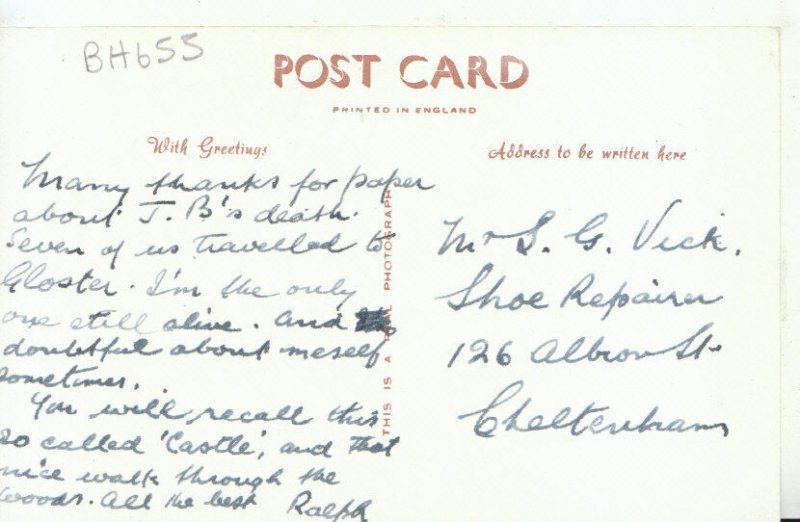 BH655
POST CARD
PRINTED IN ENGLAND
With Greetings
Address to be written here
Many thanks for paper
about J. B's death.
Seven of us travelled to
Gloster. I'm the only
one still alive. And
doubtful about meself
sometimes.
You will recall this
so called 'Castle', and that
nice walk through the
woods. All the best Ralph
THIS IS A REAL PHOTOGRAPH
Mr S. G. Vick.
Shoe Repairer
126 Albion St.
Cheltenham